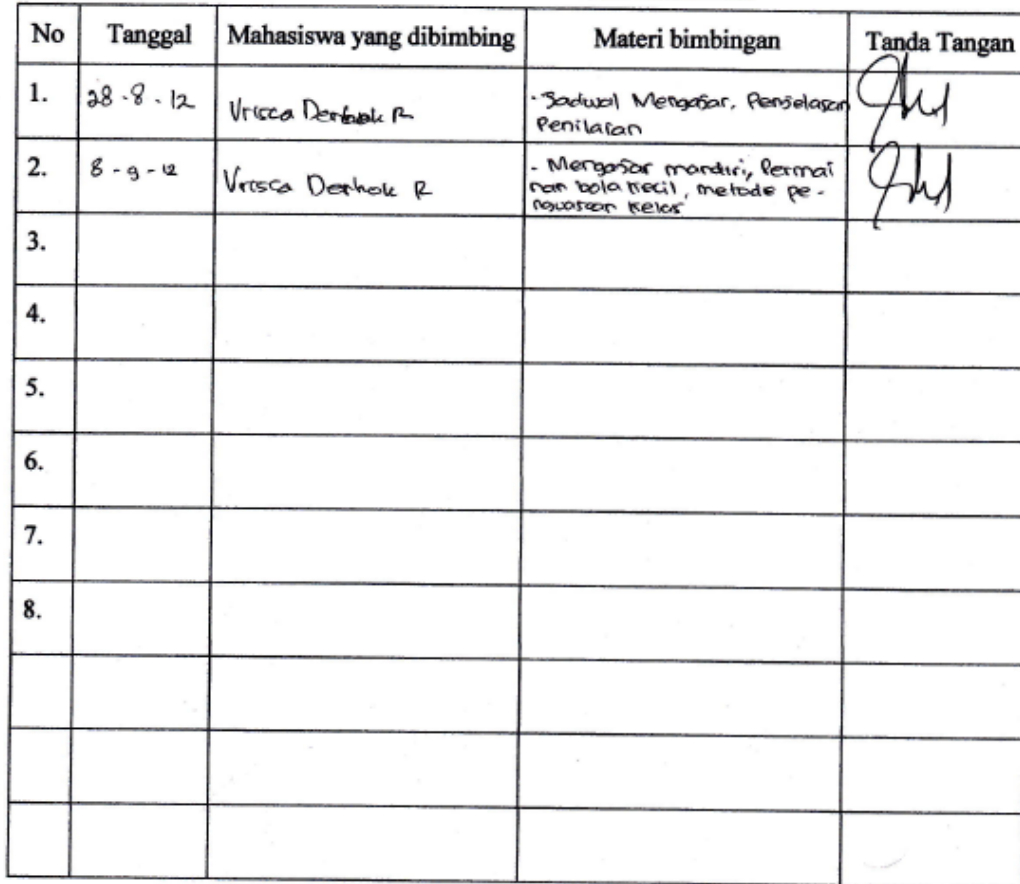 No Tanggal Mahasiswa yang dibimbing Materi bimbingan Tanda Tangan
1. 28-8-12 Vrisca R - Jadwal Mengajar, Penjelasan
Penilaian
2. 8-9-12 Vrisca Denhok R - Mengajar mandiri, Permai
nan bola kecil, metode pe-
nguasaan kelas
3.
4.
5.
6.
7.
8.